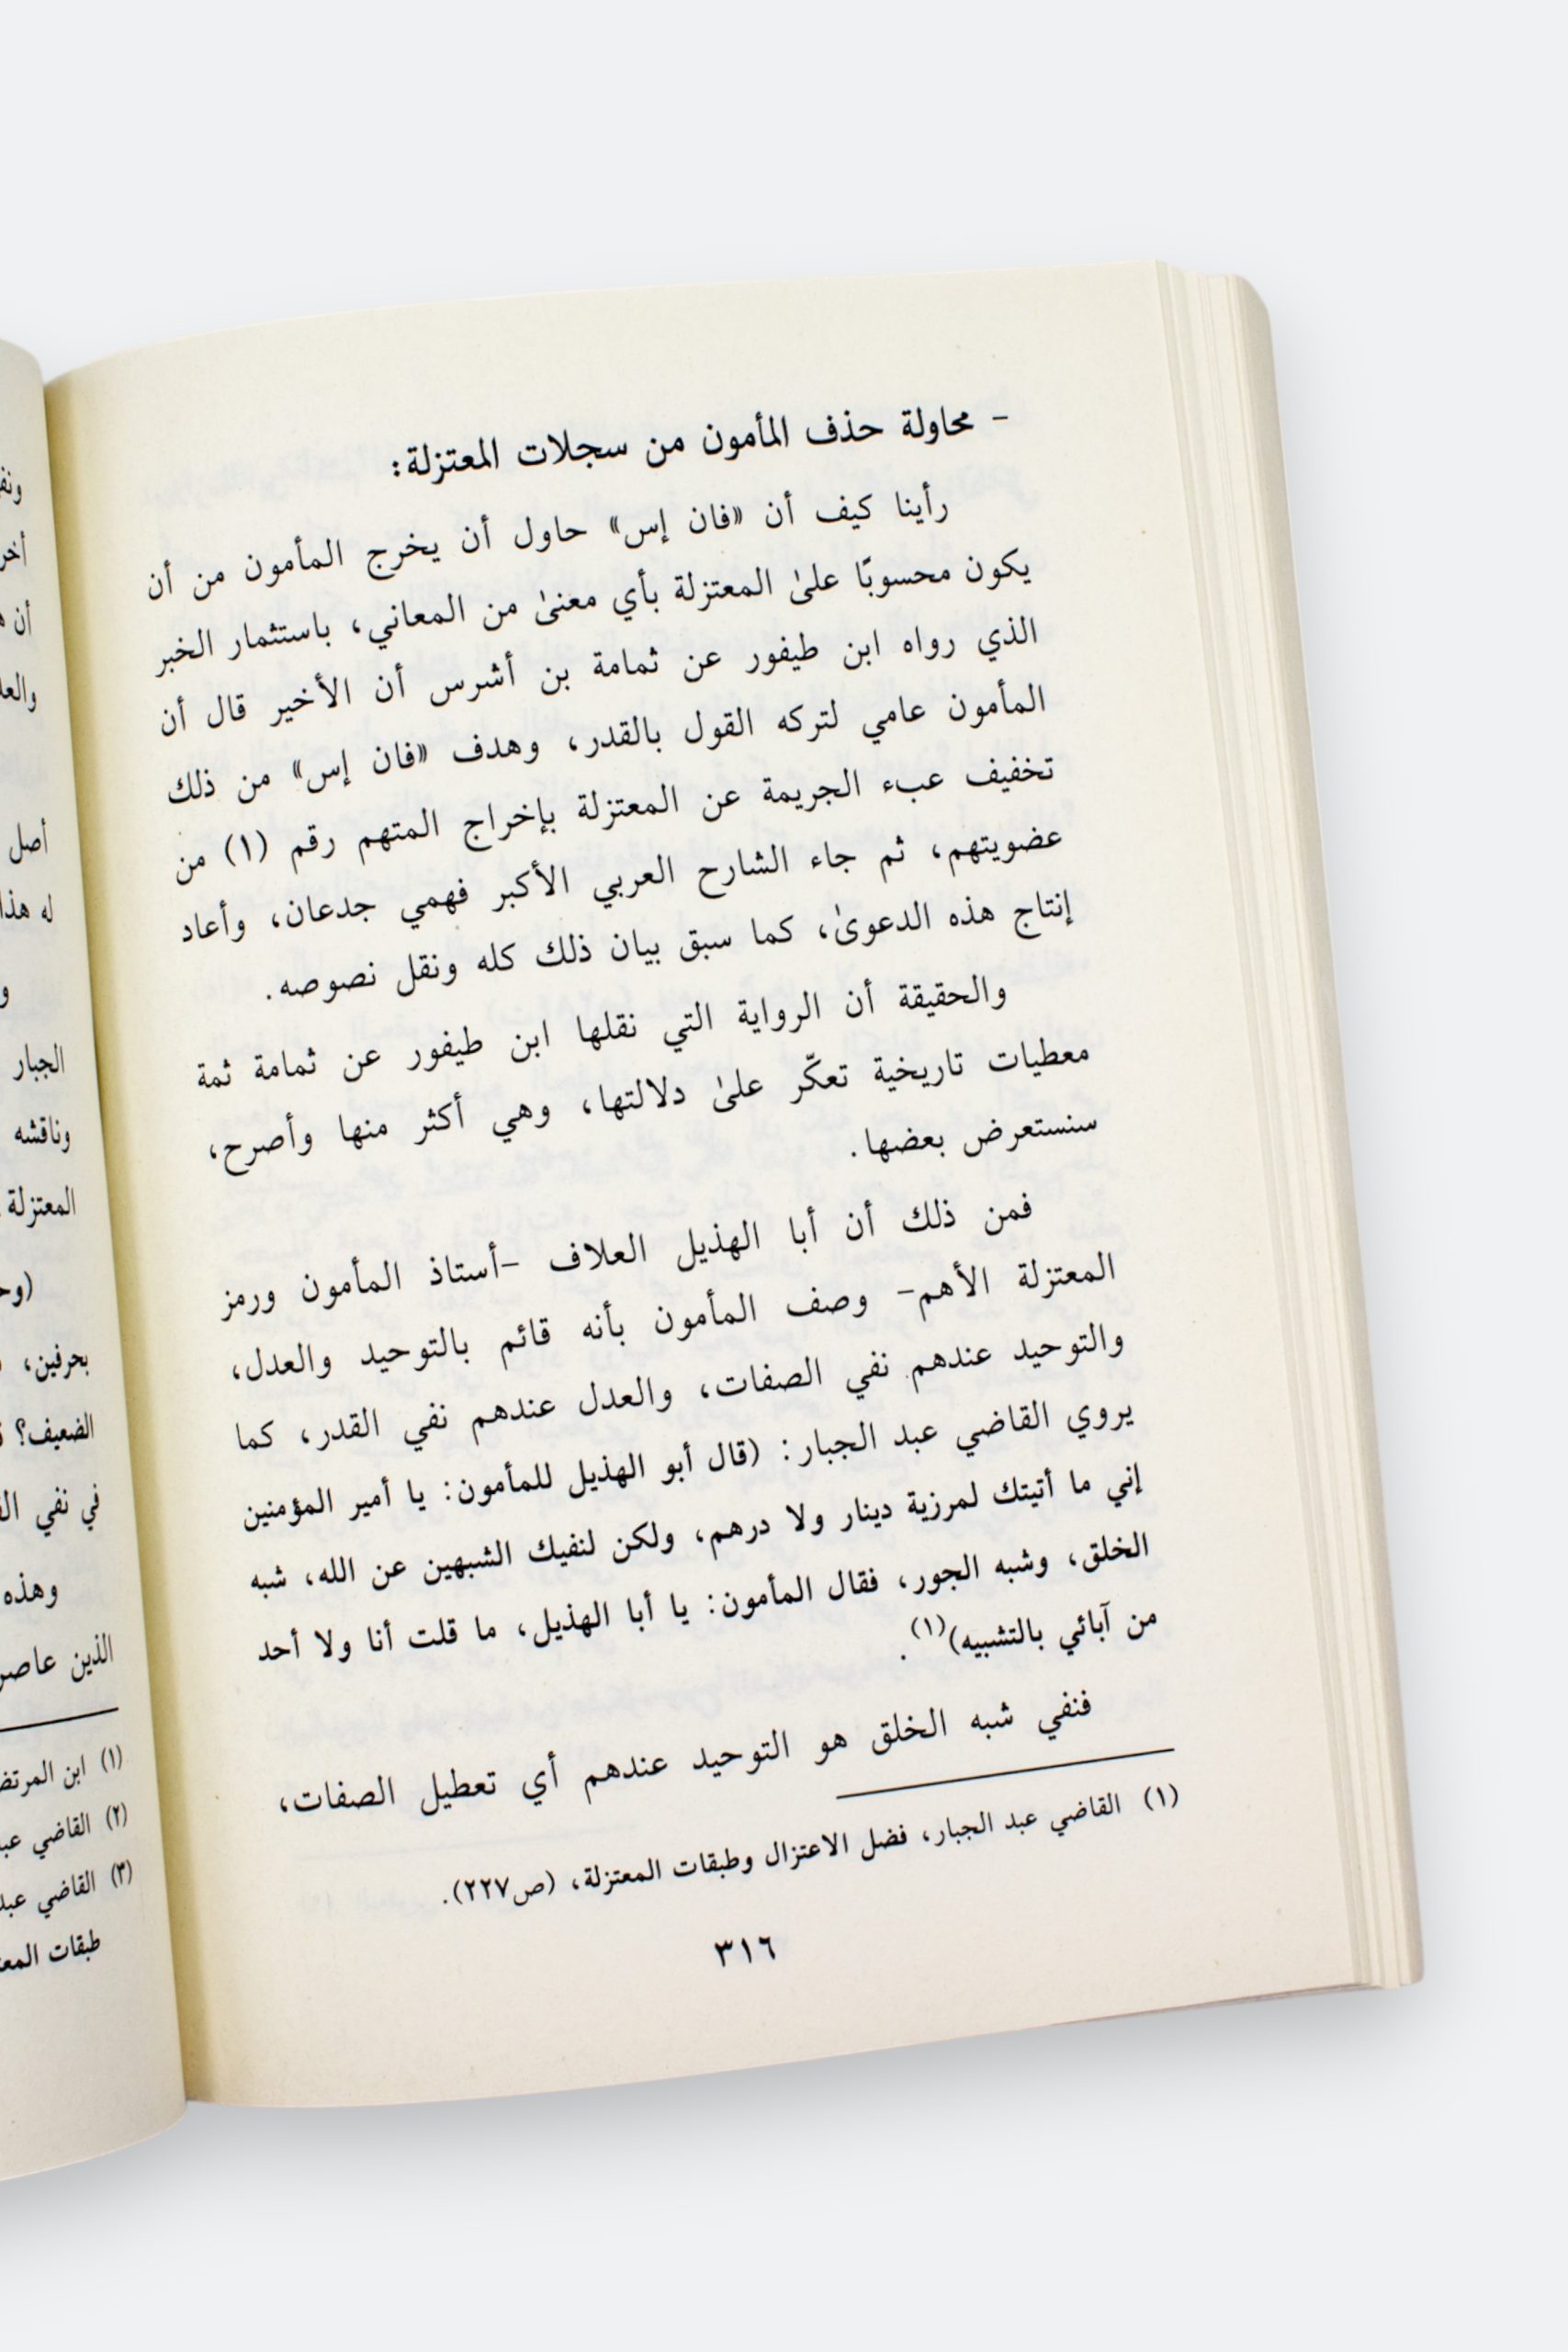 - محاولة حذف المأمون من سجلات المعتزلة:
رأينا كيف أن «فان إس» حاول أن يخرج المأمون من أن
يكون محسوبًا علىٰ المعتزلة بأي معنىٰ من المعاني، باستثمار الخبر
الذي رواه ابن طيفور عن ثمامة بن أشرس أن الأخير قال أن
المأمون عامي لتركه القول بالقدر، وهدف «فان إس» من ذلك
تخفيف عبء الجريمة عن المعتزلة بإخراج المتهم رقم (١) من
عضويتهم، ثم جاء الشارح العربي الأكبر فهمي جدعان، وأعاد
إنتاج هذه الدعوىٰ، كما سبق بيان ذلك كله ونقل نصوصه.
والحقيقة أن الرواية التي نقلها ابن طيفور عن ثمامة ثمة
معطيات تاريخية تعكّر علىٰ دلالتها، وهي أكثر منها وأصرح،
سنستعرض بعضها.
فمن ذلك أن أبا الهذيل العلاف -أستاذ المأمون ورمز
المعتزلة الأهم- وصف المأمون بأنه قائم بالتوحيد والعدل،
والتوحيد عندهم نفي الصفات، والعدل عندهم نفي القدر، كما
يروي القاضي عبد الجبار: (قال أبو الهذيل للمأمون: يا أمير المؤمنين
إني ما أتيتك لمرزية دينار ولا درهم، ولكن لنفيك الشبهين عن الله، شبه
الخلق، وشبه الجور، فقال المأمون: يا أبا الهذيل، ما قلت أنا ولا أحد
من آبائي بالتشبيه)(١).
فنفي شبه الخلق هو التوحيد عندهم أي تعطيل الصفات،
(١) القاضي عبد الجبار، فضل الاعتزال وطبقات المعتزلة، (ص٢٢٧).
٣١٦
أصل
له هذا
الجبار
وناقشه
المعتزلة
بحرفين،
الضعيف؟
في نفي
وهذه
الذين
(١) ابن
(٢) القاضي
(٣) القاضي
طبقات